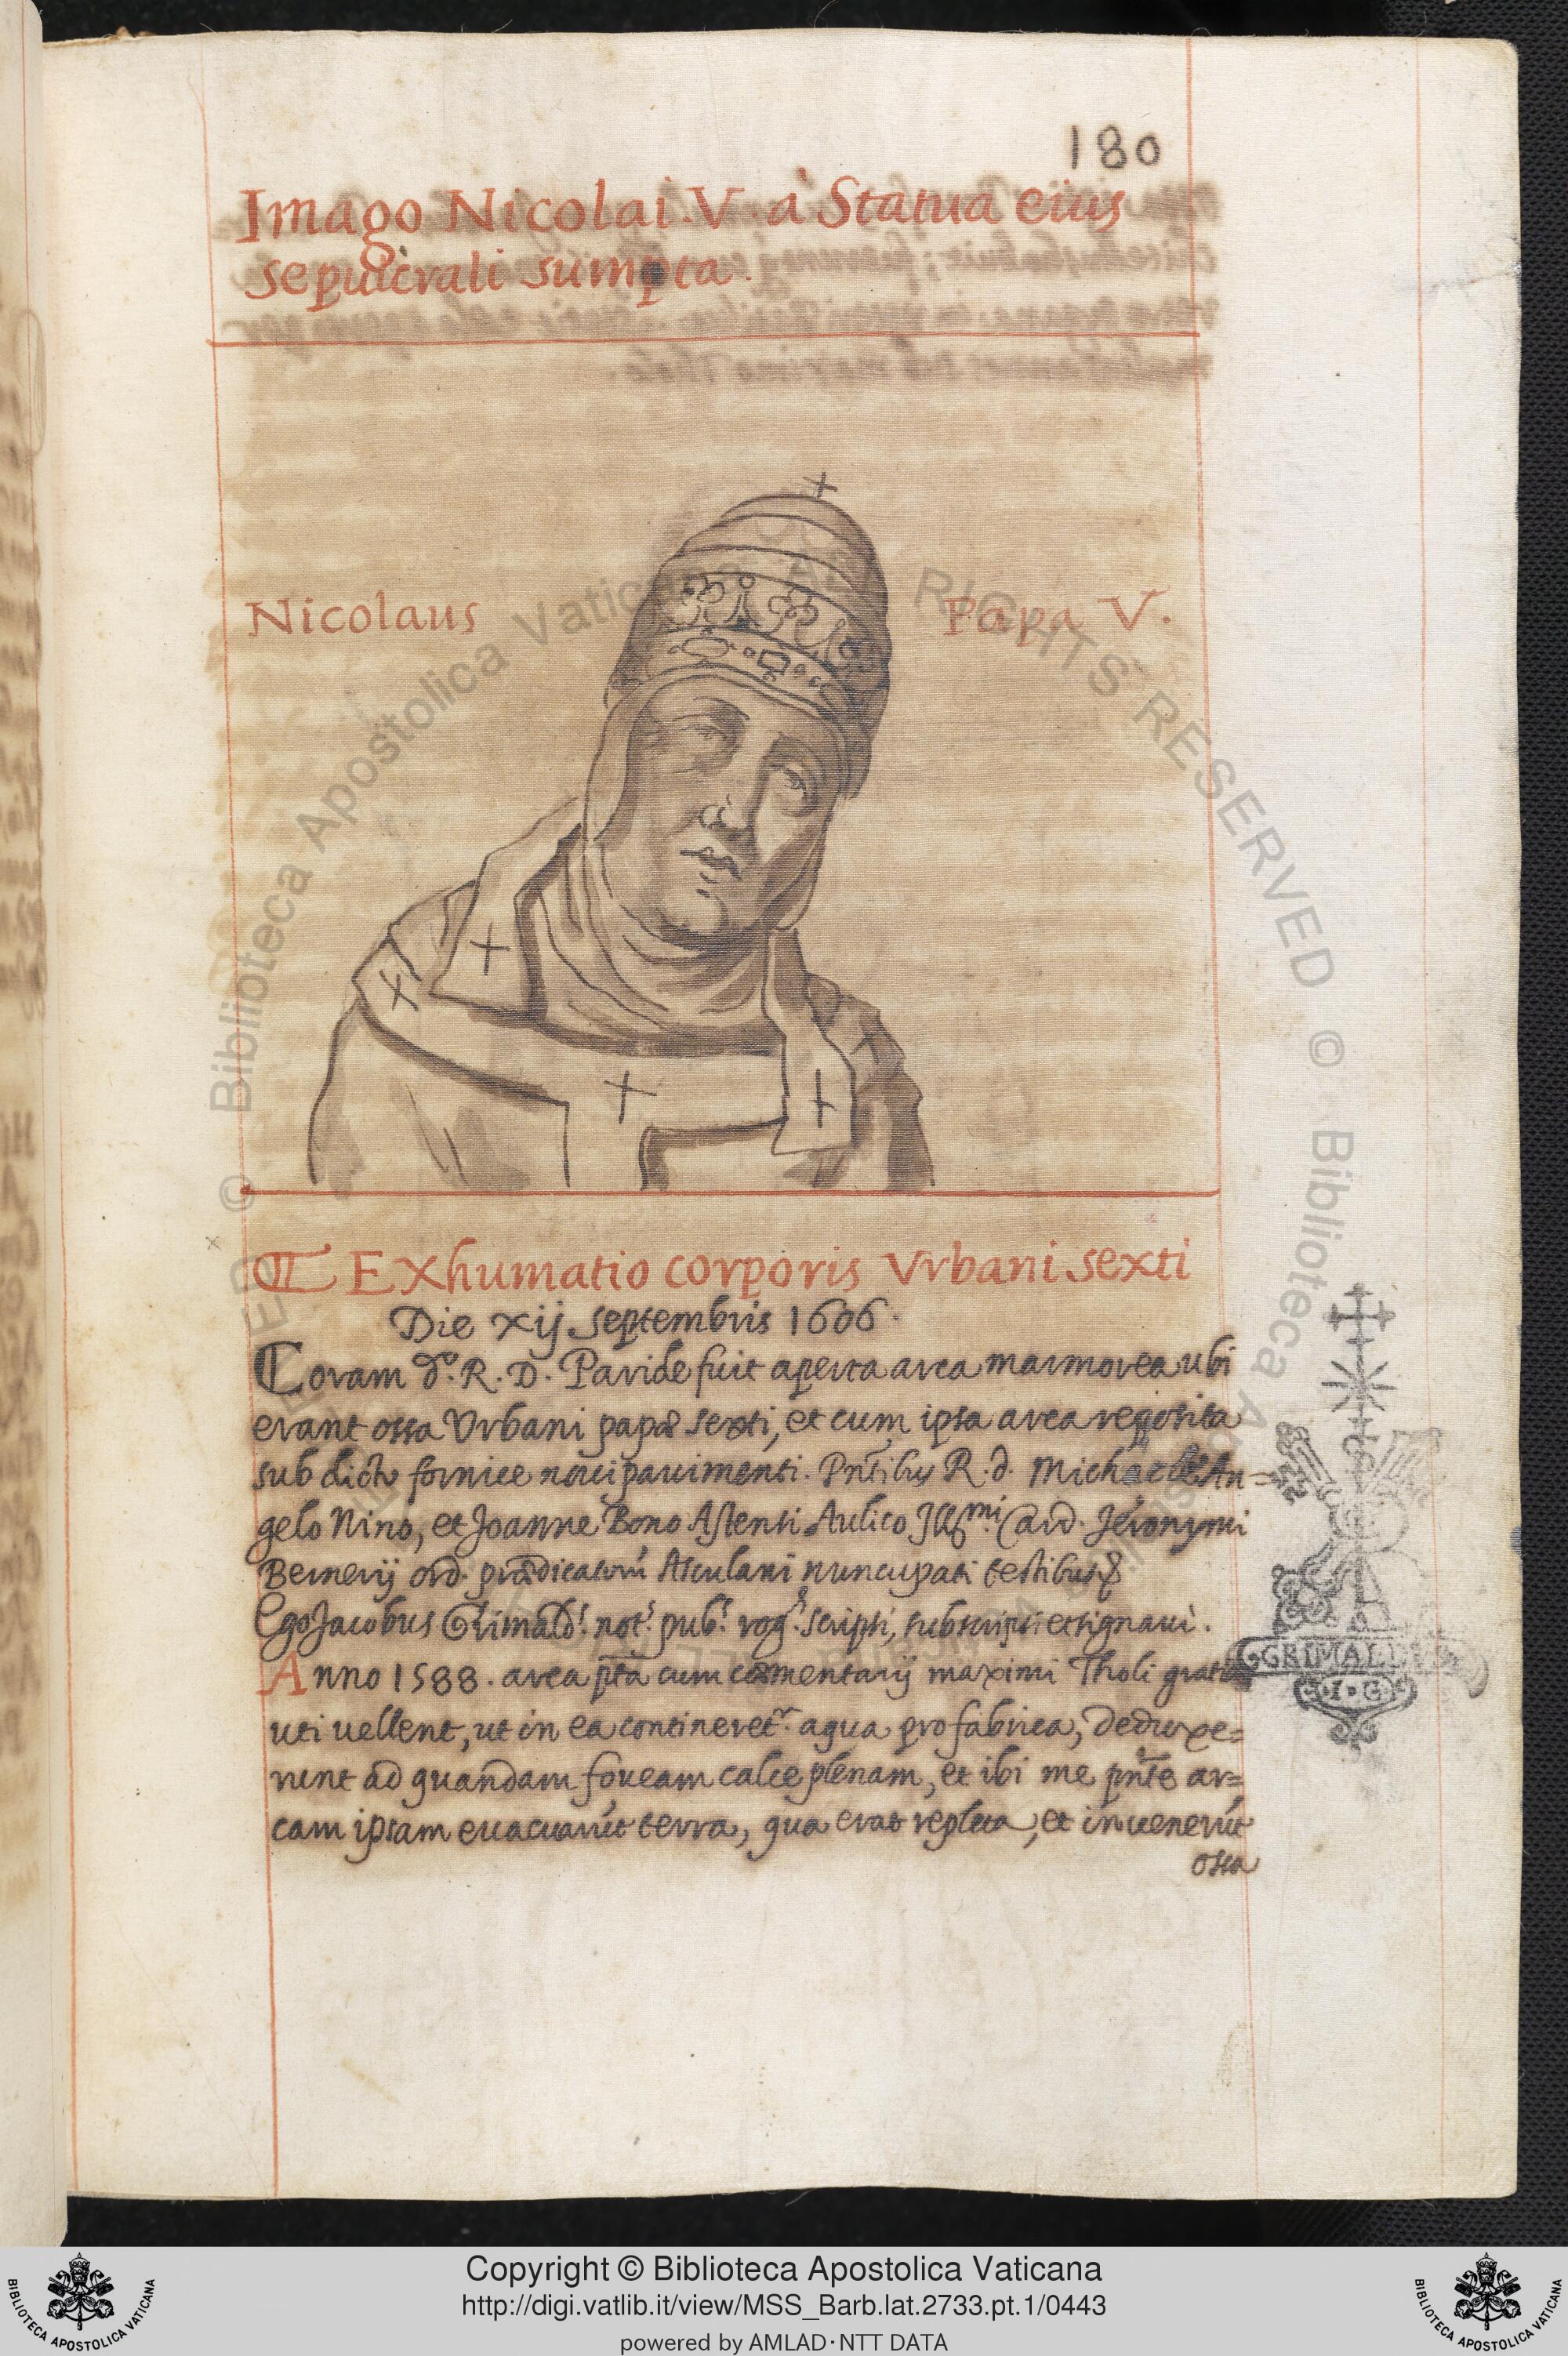 180
Imago Nicolai .V. à Statua eius
sepulcrali sumpta.
Nicolaus Papa V.
Exhumatio corporis Vrbani sexti
Die xij septembris 1606.
Coram d.º R. D. Paride fuit aperta arca marmorea ubi
erant ossa Vrbani papæ sexti, et cum ipsa arca reposita
sub dicto fornice noui pauimenti. Pñtibus R. d. Michaele An=
gelo Nino, et Joanne Bono Astensi Aulico Illmi. Card. Jeronymi
Bernerij ord. prædicatorũ Asculani nuncupati testibus
Ego Jacobus Grimald.s not.s pub.s rog.s scripsi, subscripsi et signaui.
Anno 1588. arca p̃ta cum cæmentarij maximi Tholi gratia
uti vellent, ut in ea contineretr. aqua pro fabrica, deduxe=
runt ad quandam foueam calce plenam, et ibi me pñte ar=
cam ipsam euacuarũt terra, qua erat repleta, et inuenerũt
ossa
GRIMALDVS
I·G
© Biblioteca Apostolica Vaticana ALL RIGHTS RESERVED
Copyright © Biblioteca Apostolica Vaticana
http://digi.vatlib.it/view/MSS_Barb.lat.2733.pt.1/0443
powered by AMLAD·NTT DATA
BIBLIOTECA APOSTOLICA VATICANA
BIBLIOTECA APOSTOLICA VATICANA